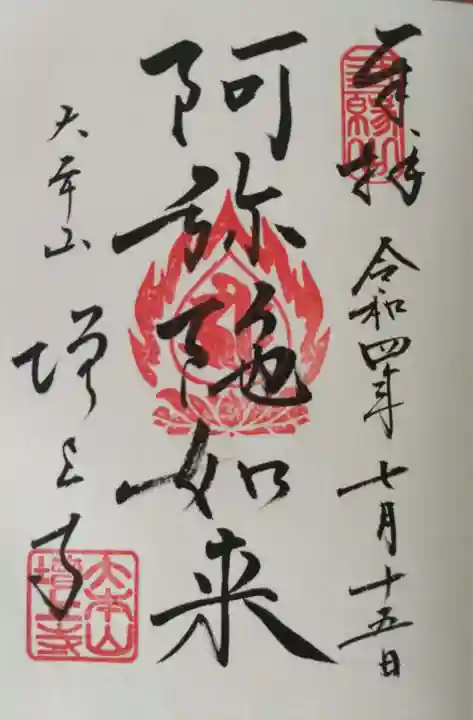 奉拝 令和四年七月十五日
三縁山
阿弥陀如来
大本山 増上寺
大本山
増上寺